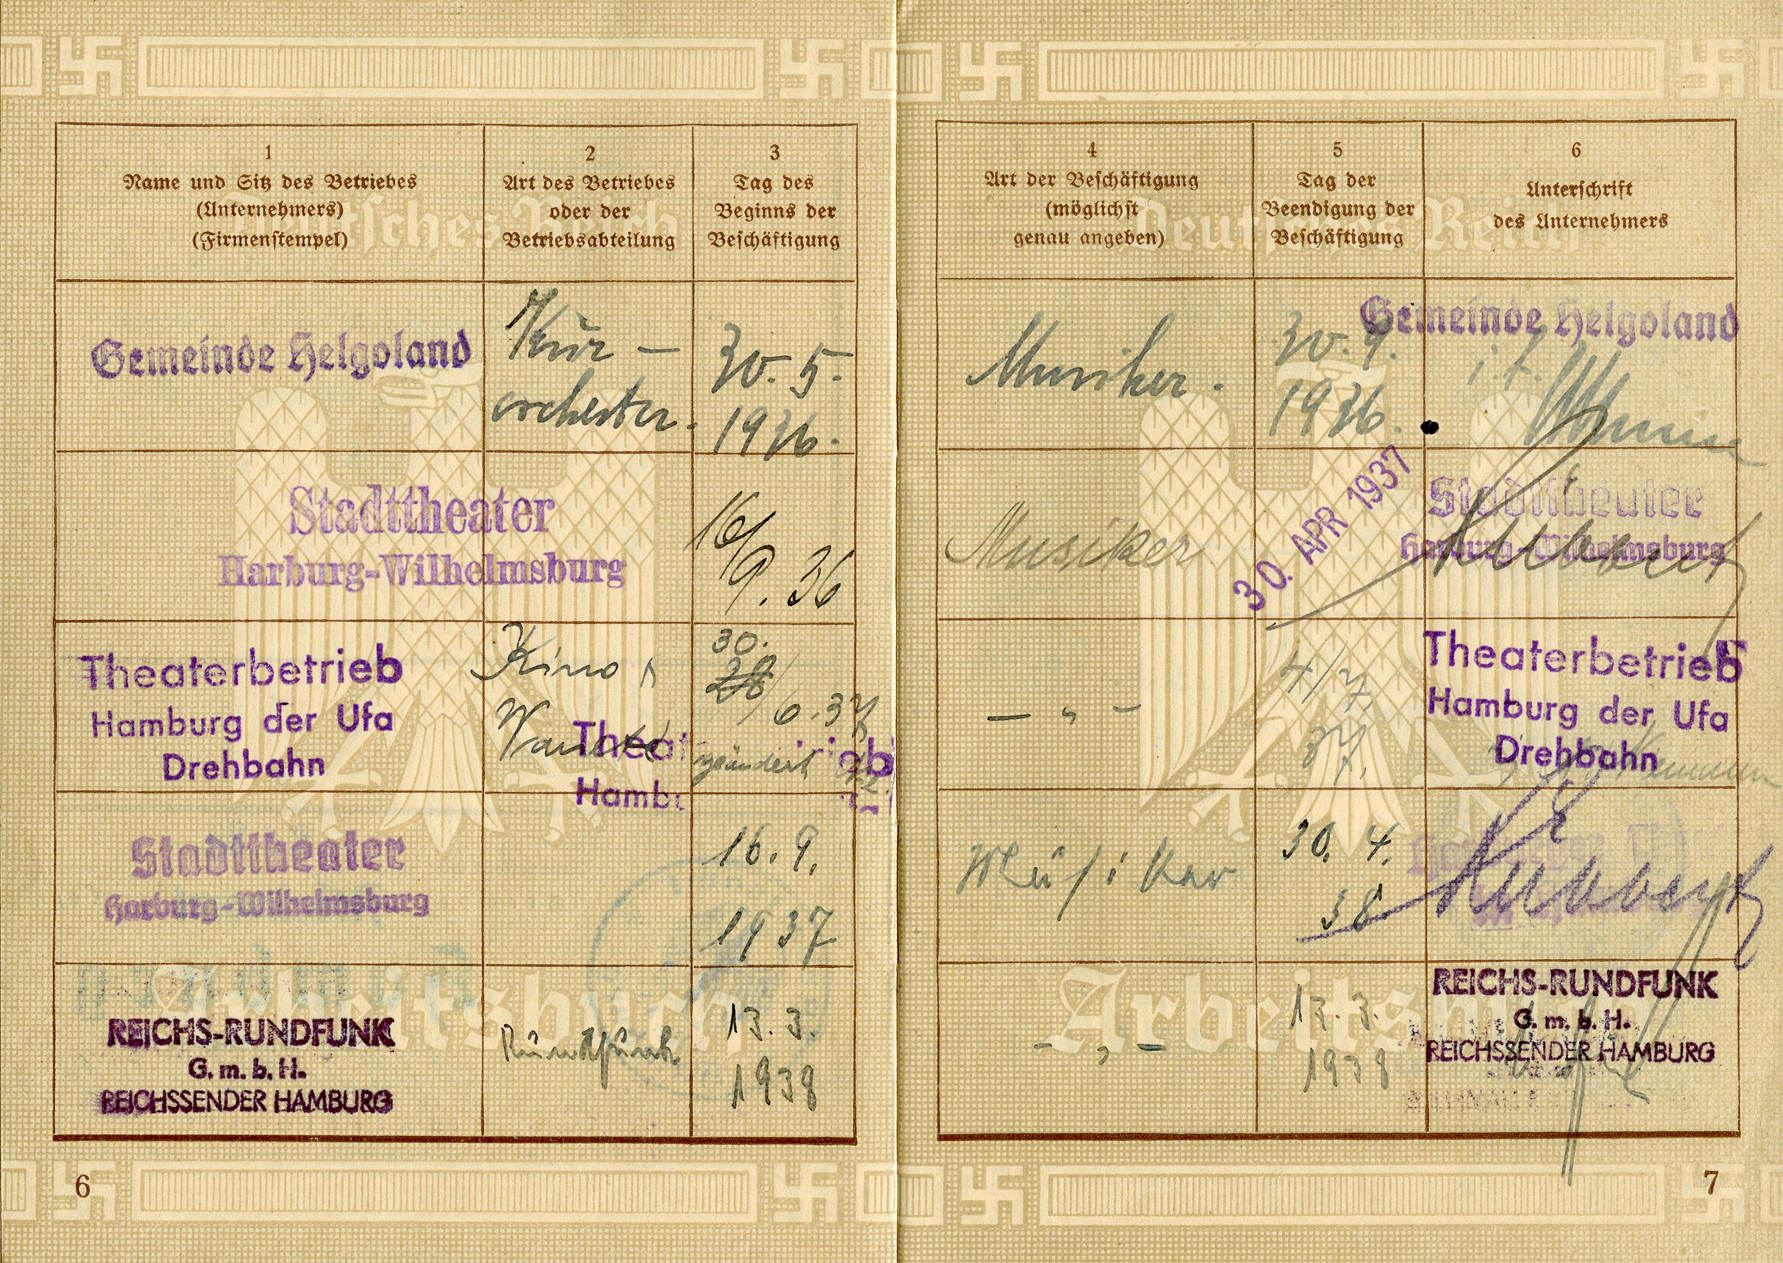 1
Name und Sitz des Betriebes
(Unternehmers)
(Firmenstempel)
2
Art des Betriebes
oder der
Betriebsabteilung
3
Tag des
Beginns der
Beschäftigung
Gemeinde Helgoland
Kur-
orchester.
30. 5.
1936.
Stadttheater
Harburg-Wilhelmsburg
16/
9. 36
Theaterbetrieb
Hamburg der Ufa
Drehbahn
Kino
30.
28/6.37
geändert
Stadttheater
Harburg-Wilhelmsburg
16. 9.
1937
REICHS-RUNDFUNK
G. m. b. H.
REICHSSENDER HAMBURG
Rundfunk
13. 3.
1938
6
4
Art der Beschäftigung
(möglichst
genau angeben)
5
Tag der
Beendigung der
Beschäftigung
6
Unterschrift
des Unternehmers
Musiker.
30. 9.
1936.
Gemeinde Helgoland
Musiker
30. APR 1937
Stadttheater
Harburg-Wilhelmsburg
— „ —
4/7
37.
Theaterbetrieb
Hamburg der Ufa
Drehbahn
Musiker
30. 4.
38
— „ —
13. 3.
1938
REICHS-RUNDFUNK
G. m. b. H.
REICHSSENDER HAMBURG
7
Deutsches Reich
Arbeitsbuch